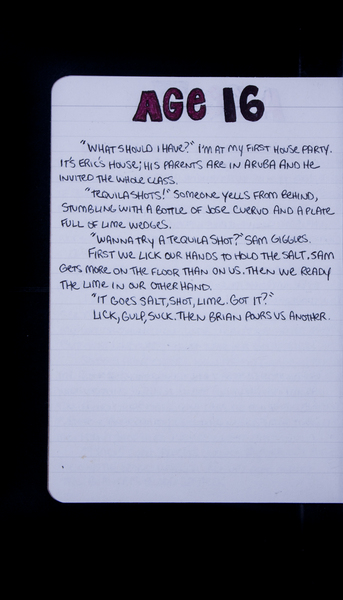 AGE 16
"WHAT SHOULD I HAVE?" I'M AT MY FIRST HOUSE PARTY.
IT'S ERIC'S HOUSE; HIS PARENTS ARE IN ARUBA AND HE
INVITED THE WHOLE CLASS.
"TEQUILA SHOTS!" SOMEONE YELLS FROM BEHIND,
STUMBLING WITH A BOTTLE OF JOSE CUERVO AND A PLATE
FULL OF LIME WEDGES.
"WANNA TRY A TEQUILA SHOT?" SAM GIGGLES.
FIRST WE LICK OUR HANDS TO HOLD THE SALT. SAM
GETS MORE ON THE FLOOR THAN ON US. THEN WE READY
THE LIME IN OUR OTHER HAND.
"IT GOES SALT, SHOT, LIME. GOT IT?"
LICK, GULP, SUCK. THEN BRIAN POURS US ANOTHER.